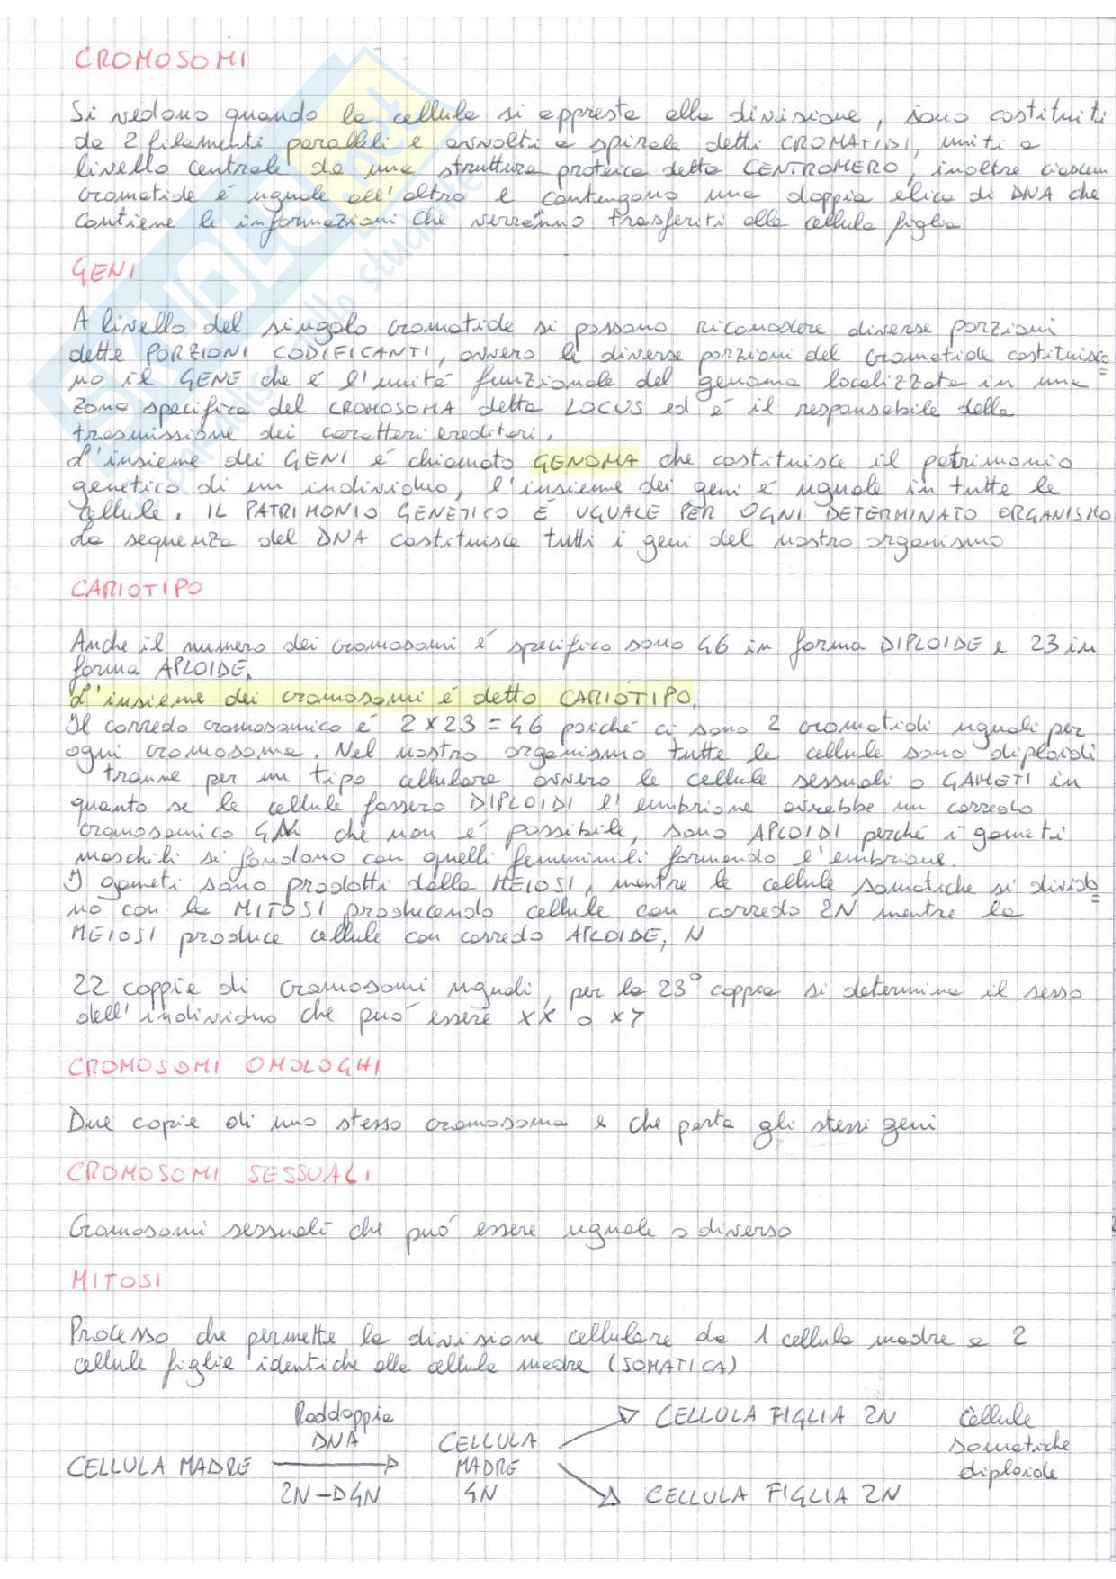 CROMOSOMI
Si vedono quando la cellula si appresta alla divisione, sono costituiti
da 2 filamenti paralleli e avvolti a spirale detti CROMATIDI, uniti a
livello centrale da una struttura proteica detta CENTROMERO, inoltre ciascun
cromatide è uguale all'altro e contengono una doppia elica di DNA che
contiene le informazioni che verranno trasferiti alla cellula figlia
GENI
A livello del singolo cromatide si possono riconoscere diverse porzioni
dette PORZIONI CODIFICANTI, ovvero le diverse porzioni del cromatide costituisco
no il GENE che è l'unità funzionale del genoma localizzata in una
zona specifica del CROMOSOMA detta LOCUS ed è il responsabile della
trasmissione dei caratteri ereditari.
L'insieme dei GENI è chiamato GENOMA che costituisce il patrimonio
genetico di un individuo, l'insieme dei geni è uguale in tutte le
cellule. IL PATRIMONIO GENETICO È UGUALE PER OGNI DETERMINATO ORGANISMO
La sequenza del DNA costituisce tutti i geni del nostro organismo
CARIOTIPO
Anche il numero dei cromosomi è specifico sono 46 in forma DIPLOIDE e 23 in
forma APLOIDE.
L'insieme dei cromosomi è detto CARIOTIPO.
Il corredo cromosomico è 2x23=46 poiché ci sono 2 cromatidi uguali per
ogni cromosoma. Nel nostro organismo tutte le cellule sono diploidi
tranne per un tipo cellulare ovvero le cellule sessuali o GAMETI in
quanto se le cellule fossero DIPLOIDI l'embrione avrebbe un corredo
cromosomico 4N che non è possibile, sono APLOIDI perché i gameti
maschili si fondono con quelli femminili formando l'embrione.
I gameti sono prodotti dalla MEIOSI, mentre le cellule somatiche si divido
no con la MITOSI producendo cellule con corredo 2N mentre la
MEIOSI produce cellule con corredo APLOIDE, N
22 coppie di cromosomi uguali, per la 23° coppia si determina il sesso
dell'individuo che può essere XX o XY
CROMOSOMI OMOLOGHI
Due copie di uno stesso cromosoma e che porta gli stessi geni
CROMOSOMI SESSUALI
Cromosomi sessuali che può essere uguale o diverso
MITOSI
Processo che permette la divisione cellulare da 1 cellula madre a 2
cellule figlie identiche alla cellula madre (SOMATICA)
Raddoppia
DNA
CELLULA MADRE
2N→4N
CELLULA
MADRE
4N
CELLULA FIGLIA 2N
CELLULA FIGLIA 2N
Cellule
somatiche
diploide